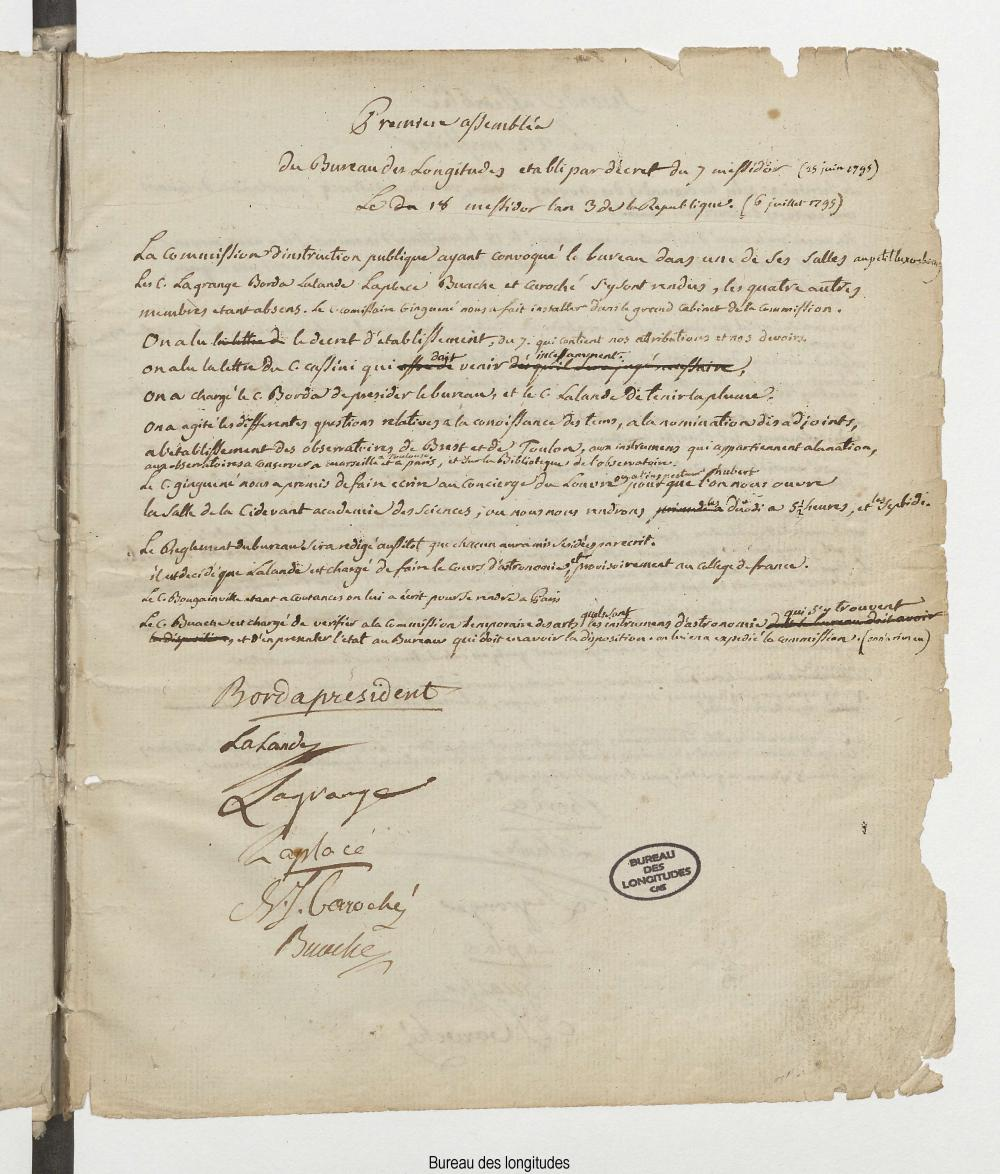 Premiere assemblée
du Bureau des Longitudes etabli par décret du 7 messidor (25 juin 1795)
Le du 18 messidor lan 3 de la Republique. (6 juillet 1795)
La Commission d'instruction publique ayant convoqué le bureau dans une de ses salles au petit luxembourg
Les C. Lagrange Borda Lalande Laplace Buache et caroché s'y sont rendus, les quatre autres
membres etant absens. Le C. comissaire Ginguené nous a fait installer dans le grand cabinet de la commission.
On a lu la lettre de le decret d'établissement, du 7. qui contient nos attributions et nos devoirs.
on a lu la lettre du C. Cassini qui doit venir incessamment.
on a chargé le C. Borda de presider le bureau, et le C. Lalande de tenir la plume.
on a agité les differentes questions relatives a la conoissance des tems, a la nomination des adjoints,
a l'etablissement des observatoires de Brest et de Toulon, aux instrumens qui appartiennent a la nation,
aux observatoires a conserver a marseille a Toulouse et a paris, et sur la Bibliotheque de l'observatoire.
Le C. ginguené nous a promis de faire ecrire au concierge du Louvre ou a l'inspecteur hubert pour que l'on nous ouvre
la salle de la cidevant academie des sciences, ou nous nous rendrons les duodi a 5 1/2 heures, et les septidi.
Le Reglement du bureau sera redigé aussitot que chacun aura mis ses idées par ecrit.
il est decidé que Lalande est chargé de faire le cours d'astronomie, provisoirement au college de france.
Le C. Bougainville etant a coutances on lui a ecrit pour se rendre a Paris
Le C. Buache est chargé de verifier a la Commission temporaire des arts quels sont les instrumens d'astronomie qui s'y trouvent dont le bureau doit avoir
la disposition, et d'en presenter l'état au Bureau qui doit en avoir la disposition. on lui en a expedié la commission.
Borda président
Lalande
Lagrange
Laplace
N. J. Caroché
Buache
BUREAU
DES
LONGITUDES
Bureau des longitudes